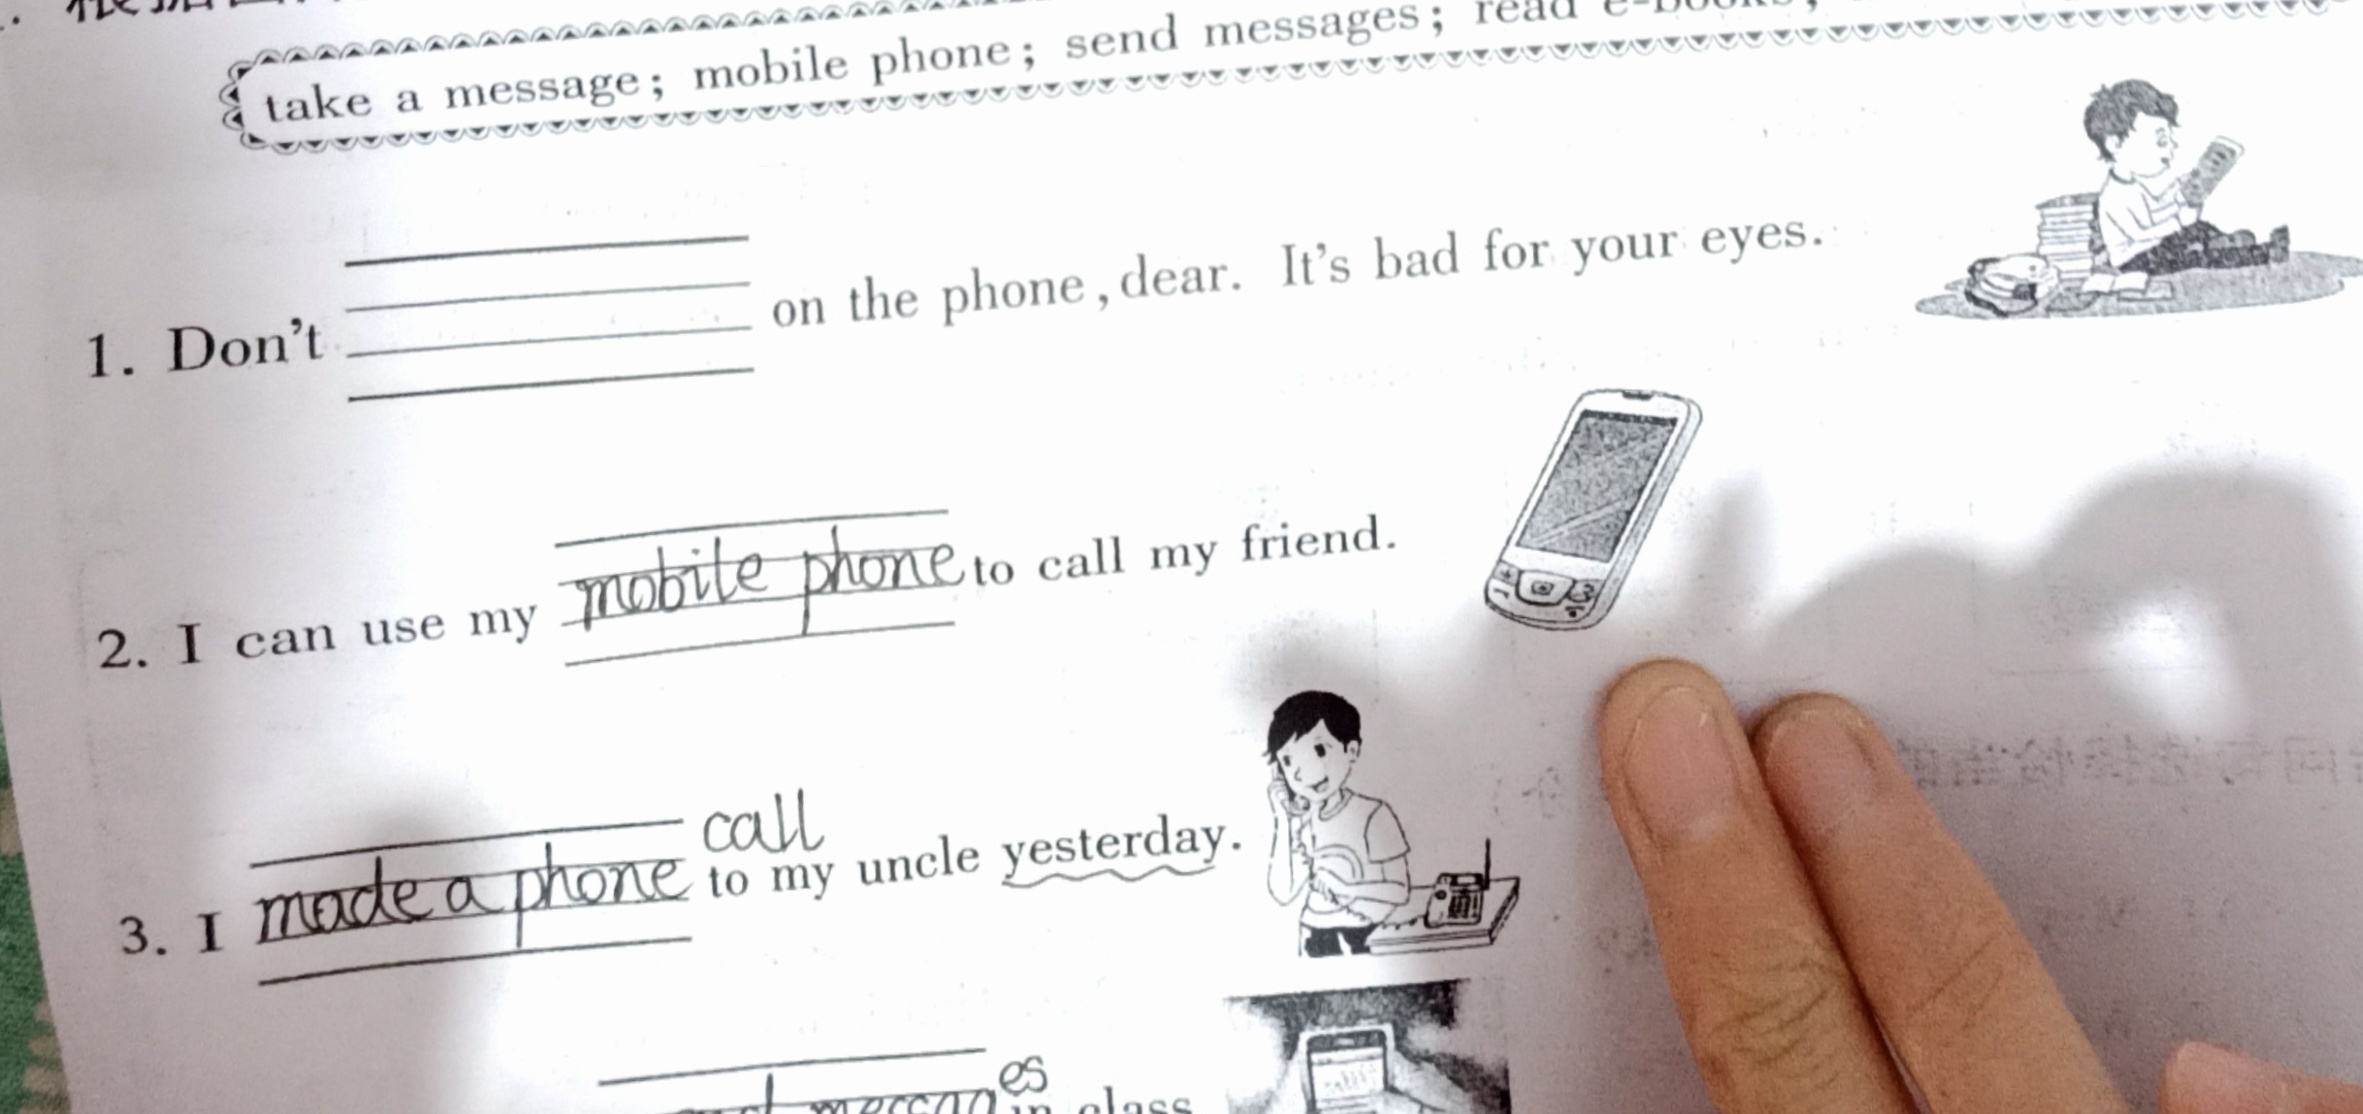 take a message; mobile phone; send messages; read e-books;
1. Don't on the phone, dear. It's bad for your eyes.
2. I can use my mobile phone to call my friend.
call
3. I made a phone to my uncle yesterday.
es
in class